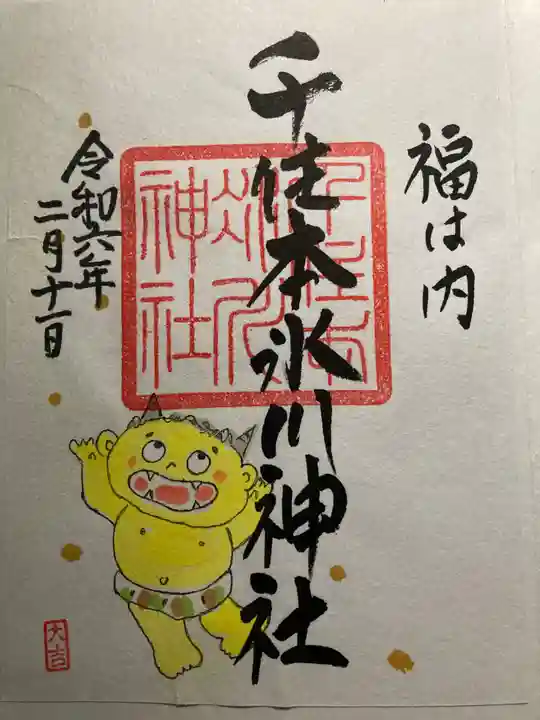 福は内
千住本氷川神社
令和六年
二月十一日
大吉